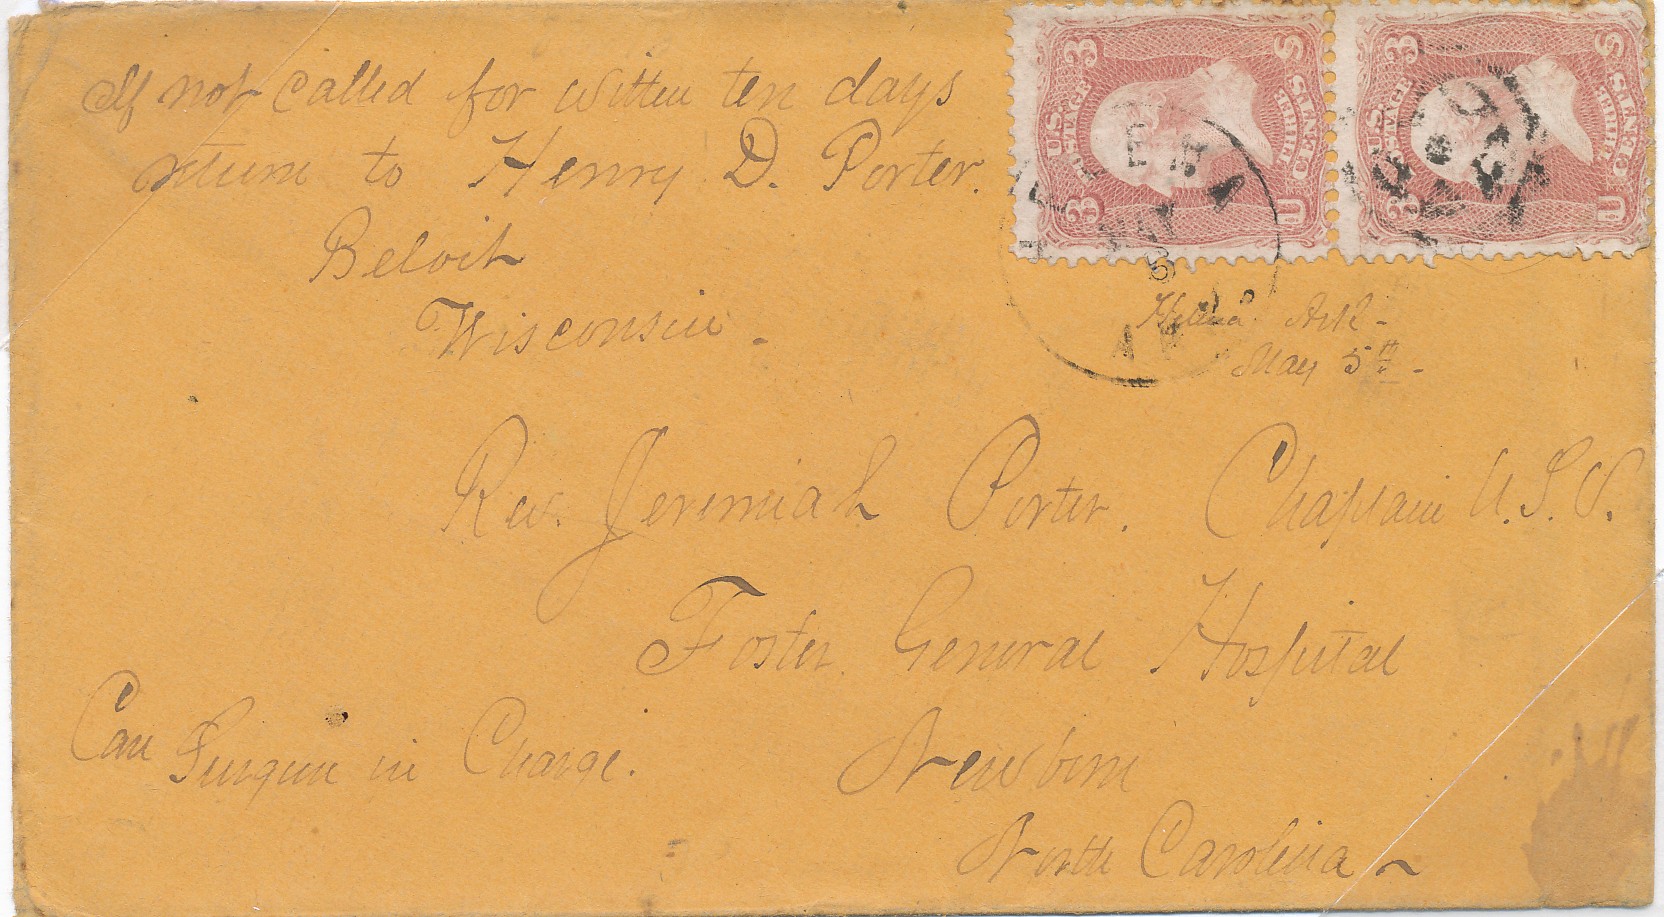 If not called for witten ten days
return to Henry D. Porter.
Beloit
Wisconsin.
3 U.S. POSTAGE THREE CENTS 3 U S
3 U.S. POSTAGE THREE CENTS 3 U S
HELENA
MAY
5
ARK
Helena Ark-
May 5th-
Rev. Jeremiah Porter. Chaplain U.S.V.
Foster General Hospital
Care Surgeon in Charge.
Newbern
North Carolina